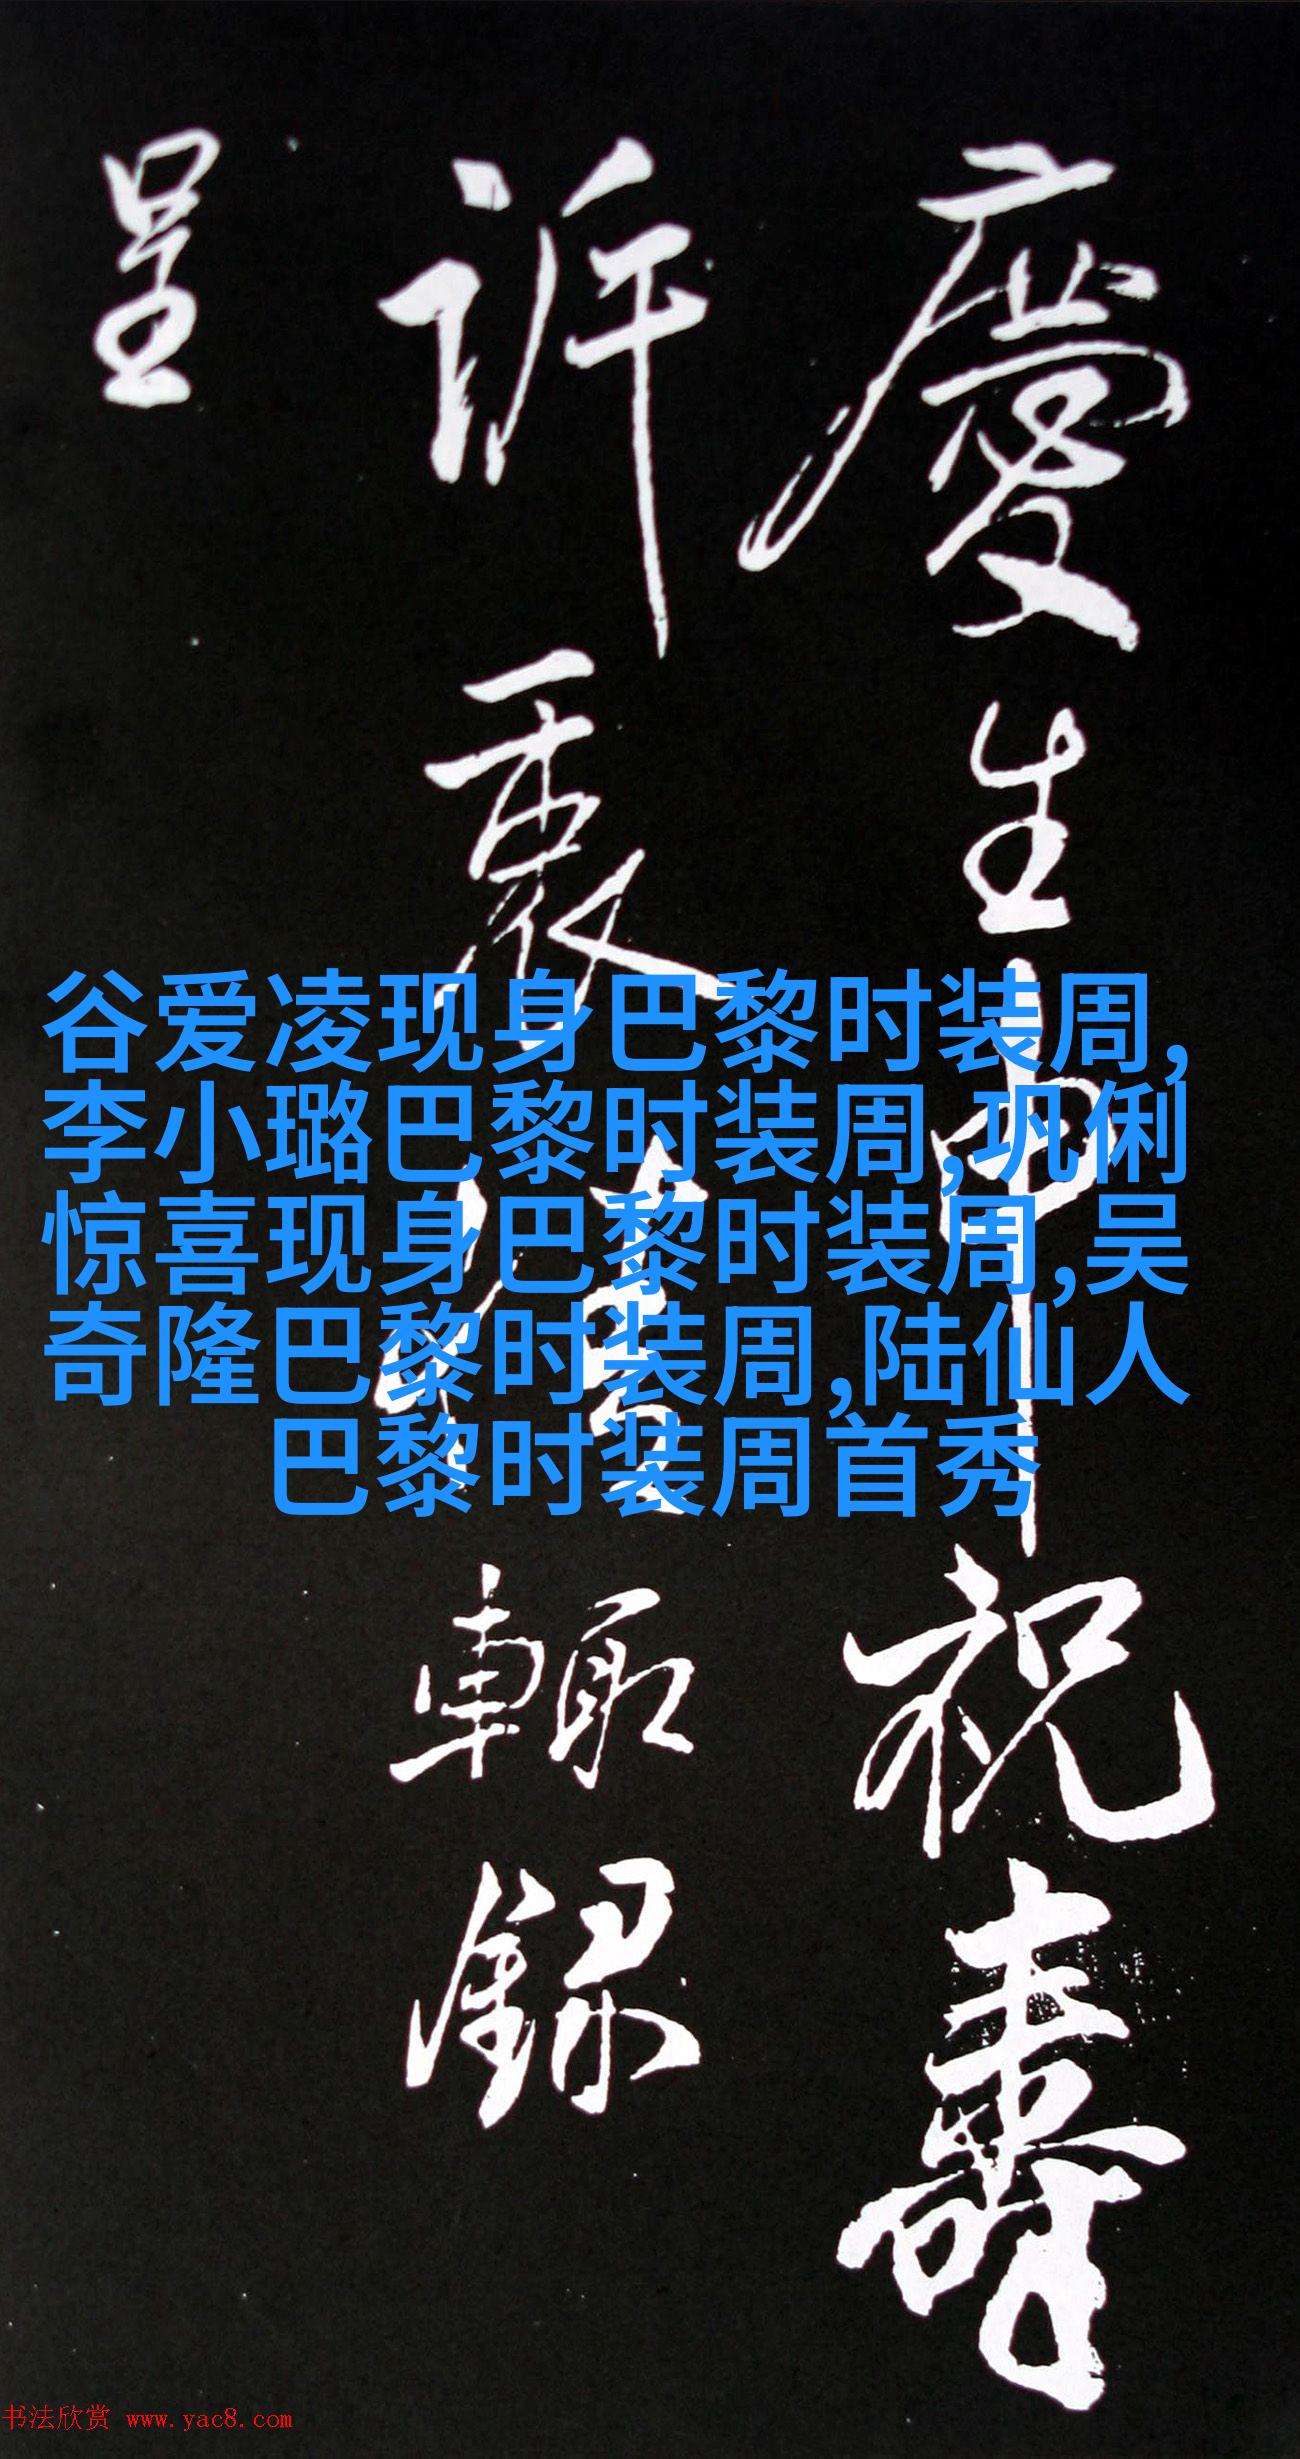 慶生申祝壽
訴衷情輒録
呈
谷爱凌现身巴黎时装周,
李小璐巴黎时装周,巩俐
惊喜现身巴黎时装周,吴
奇隆巴黎时装周,陆仙人
巴黎时装周首秀
书法欣赏 www.yac8.com